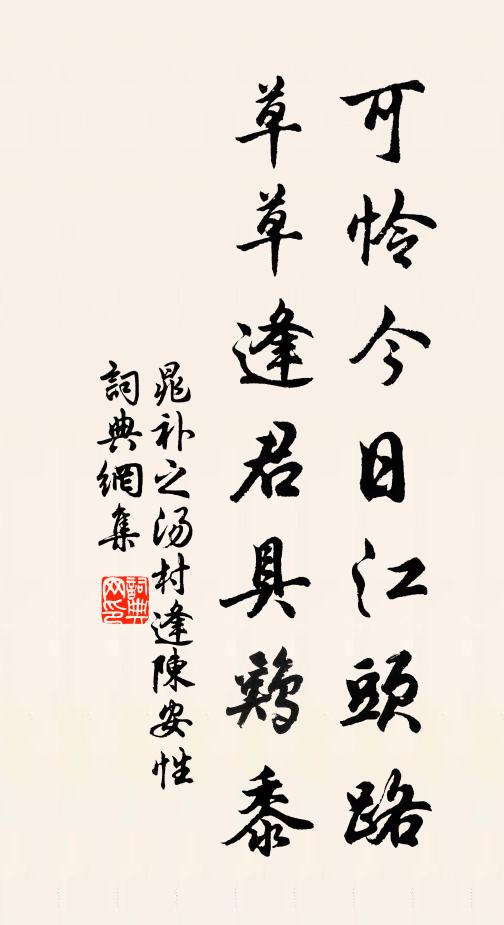 可怜今日江頭路
草草逢君具鷄黍
晁补之汤村逢陳安性
詞典網集
詞典網印